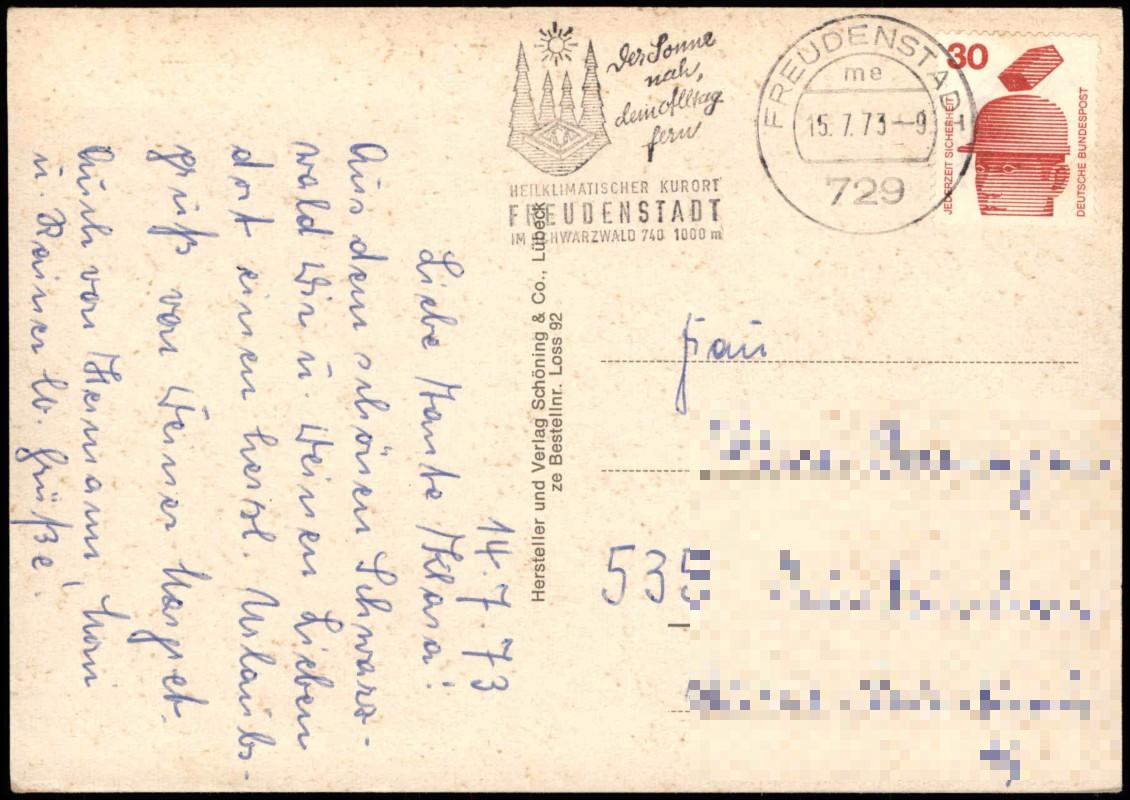 Der Sonne
nah,
dem Alltag
fern
HEILKLIMATISCHER KURORT
FREUDENSTADT
IM SCHWARZWALD 740 1000 m
FREUDENSTADT 1
me
15.7.73-9
729
30
JEDERZEIT SICHERHEIT
DEUTSCHE BUNDESPOST
14.7.73
Liebe Tante Klara!
Aus dem schönen Schwarz-
wald Dir u. Deinen Lieben
dort einen herzl. Urlaubs-
gruß von Deiner Margret.
Auch von Hermann,
u. Rainer lb. Grüße!
Hersteller und Verlag Schöning & Co., Lübeck
ze Bestellnr. Loss 92
Frau
535